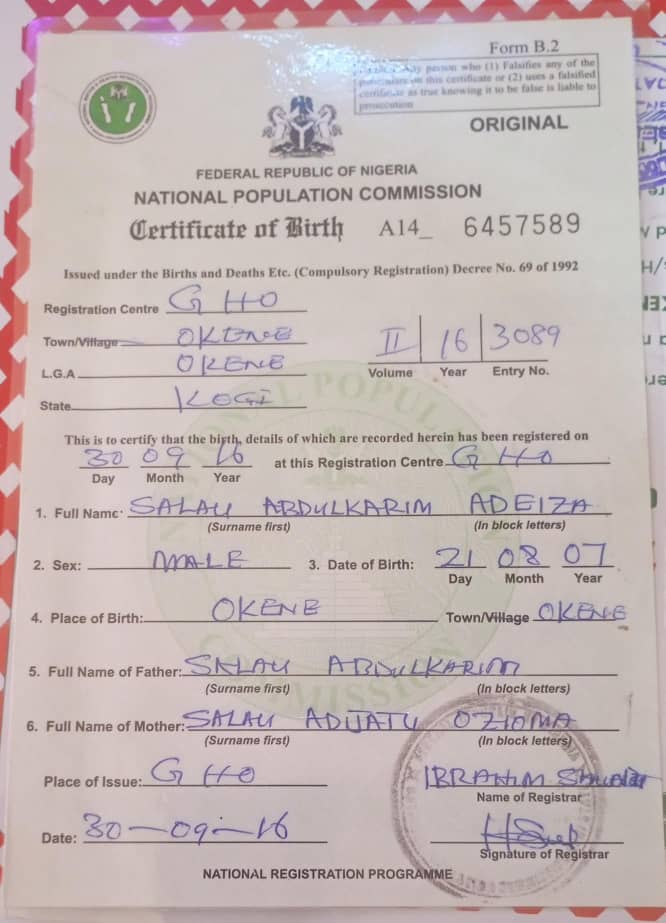 Form B.2
Any person who (1) Falsifies any of the
on this certificate or (2) uses a falsified
certificate as true knowing it to be false is liable to
prosecution
ORIGINAL
FEDERAL REPUBLIC OF NIGERIA
NATIONAL POPULATION COMMISSION
Certificate of Birth A14_ 6457589
Issued under the Births and Deaths Etc. (Compulsory Registration) Decree No. 69 of 1992
Registration Centre G HO
Town/Village OKENE
L.G.A OKENE
State KOGI
II 16 3089
Volume Year Entry No.
This is to certify that the birth, details of which are recorded herein has been registered on
30 09 16 at this Registration Centre G HO
Day Month Year
1. Full Name: SALAU ABDULKARIM ADEIZA
(Surname first) (In block letters)
2. Sex: MALE 3. Date of Birth: 21 08 07
Day Month Year
4. Place of Birth: OKENE Town/Village OKENE
5. Full Name of Father: SALAU ABDULKARIM
(Surname first) (In block letters)
6. Full Name of Mother: SALAU ADIJATU OZIOMA
(Surname first) (In block letters)
Place of Issue: G HO
IBRAHIM
Name of Registrar
Date: 30-09-16
Signature of Registrar
NATIONAL REGISTRATION PROGRAMME
NATIONAL POPULATION COMMISSION